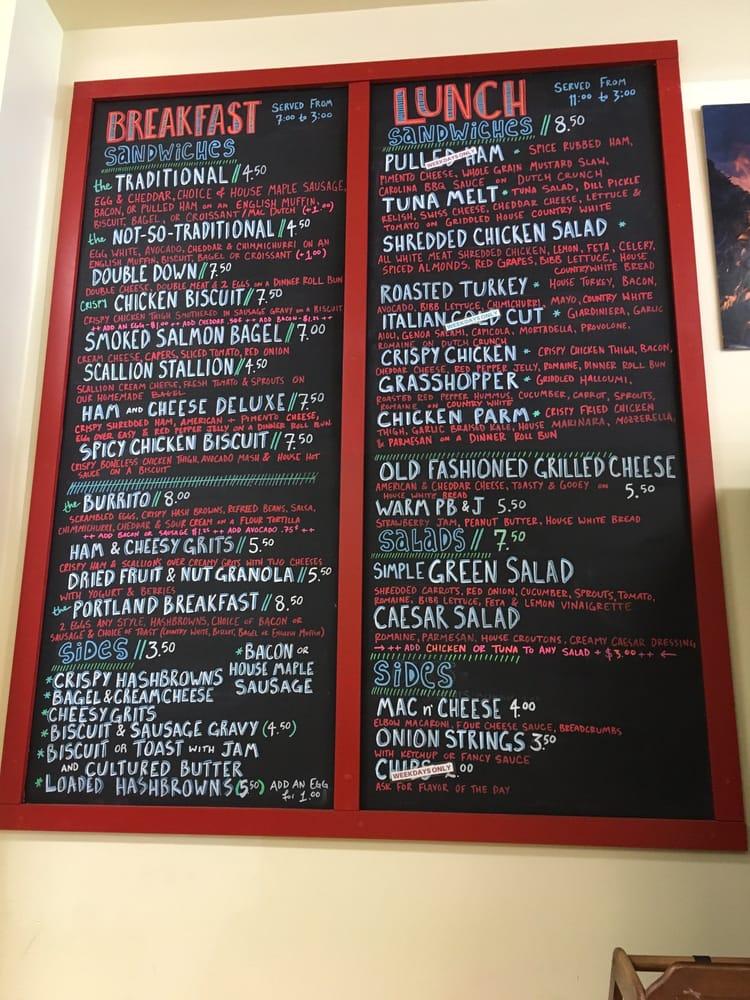 BREAKFAST SERVED FROM
7:00 to 3:00
SANDWICHES
the TRADITIONAL // 4.50
EGG & CHEDDAR, CHOICE of HOUSE MAPLE SAUSAGE,
BACON, OR PULLED HAM on an ENGLISH MUFFIN,
BISCUIT, BAGEL, or CROISSANT / MAC DUTCH (+1.00)
the NOT-SO-TRADITIONAL // 4.50
EGG WHITE, AVOCADO, CHEDDAR & CHIMICHURRI ON AN
ENGLISH MUFFIN, BISCUIT, BAGEL OR CROISSANT (+1.00)
DOUBLE DOWN // 7.50
DOUBLE CHEESE, DOUBLE MEAT & 2 EGGS on a DINNER ROLL BUN
CRISPY CHICKEN BISCUIT // 7.50
CRISPY CHICKEN THIGH SMOTHERED IN SAUSAGE GRAVY on a BISCUIT
++ ADD AN EGG-$1.00 ++ ADD CHEDDAR .50¢ ++ ADD BACON-$1.25 ++
SMOKED SALMON BAGEL // 7.00
CREAM CHEESE, CAPERS, SLICED TOMATO, RED ONION
SCALLION STALLION // 4.50
SCALLION CREAM CHEESE, FRESH TOMATO & SPROUTS ON
OUR HOMEMADE BAGEL
HAM AND CHEESE DELUXE // 7.50
CRISPY SHREDDED HAM, AMERICAN + PIMENTO CHEESE,
EGG OVER EASY & RED PEPPER JELLY ON A DINNER ROLL BUN
SPICY CHICKEN BISCUIT // 7.50
CRISPY BONELESS CHICKEN THIGH, AVOCADO MASH & HOUSE HOT
SAUCE ON A BISCUIT
the BURRITO // 8.00
SCRAMBLED EGGS, CRISPY HASH BROWNS, REFRIED BEANS, SALSA,
CHIMMICHURRI, CHEDDAR & SOUR CREAM on a FLOUR TORTILLA
++ ADD BACON OR SAUSAGE $1.25 ++ ADD AVOCADO .75¢ ++
HAM & CHEESY GRITS // 5.50
CRISPY HAM & SCALLIONS OVER CREAMY GRITS WITH TWO CHEESES
DRIED FRUIT & NUT GRANOLA // 5.50
WITH YOGURT & BERRIES
the PORTLAND BREAKFAST // 8.50
2 EGGS ANY STYLE, HASHBROWNS, CHOICE OF BACON OR
SAUSAGE & CHOICE OF TOAST (COUNTRY WHITE, BISCUIT, BAGEL OR ENGLISH MUFFIN)
SIDES // 3.50
* BACON OR
HOUSE MAPLE
SAUSAGE
* CRISPY HASHBROWNS
* BAGEL & CREAMCHEESE
* CHEESY GRITS
* BISCUIT & SAUSAGE GRAVY (4.50)
* BISCUIT OR TOAST WITH JAM
AND CULTURED BUTTER
* LOADED HASHBROWNS (5.50) ADD AN EGG
for 1.00
LUNCH SERVED FROM
11:00 to 3:00
SANDWICHES // 8.50
PULLED HAM * SPICE RUBBED HAM,
WEEKDAYS ONLY
PIMENTO CHEESE, WHOLE GRAIN MUSTARD SLAW,
CAROLINA BBQ SAUCE ON DUTCH CRUNCH
TUNA MELT * TUNA SALAD, DILL PICKLE
RELISH, SWISS CHEESE, CHEDDAR CHEESE, LETTUCE &
TOMATO ON GRIDDLED HOUSE COUNTRY WHITE
SHREDDED CHICKEN SALAD *
ALL WHITE MEAT SHREDDED CHICKEN, LEMON, FETA, CELERY,
SPICED ALMONDS, RED GRAPES, BIBB LETTUCE, HOUSE
COUNTRYWHITE BREAD
ROASTED TURKEY * HOUSE TURKEY, BACON,
AVOCADO, BIBB LETTUCE, CHIMICHURRI, MAYO, COUNTRY WHITE
ITALIAN CUT * GIARDINIERA, GARLIC
WEEKDAYS ONLY
AIOLI, GENOA SALAMI, CAPICOLA, MORTADELLA, PROVOLONE,
ROMAINE ON DUTCH CRUNCH
CRISPY CHICKEN * CRISPY CHICKEN THIGH, BACON,
CHEDDAR CHEESE, RED PEPPER JELLY, ROMAINE, DINNER ROLL BUN
GRASSHOPPER * GRIDDLED HALLOUMI,
ROASTED RED PEPPER HUMMUS, CUCUMBER, CARROT, SPROUTS,
ROMAINE ON COUNTRY WHITE
CHICKEN PARM * CRISPY FRIED CHICKEN
THIGH, GARLIC BRAISED KALE, HOUSE MARINARA, MOZZERELLA,
& PARMESAN ON A DINNER ROLL BUN
OLD FASHIONED GRILLED CHEESE
AMERICAN & CHEDDAR CHEESE, TOASTY & GOOEY ON 5.50
HOUSE WHITE BREAD
WARM PB & J 5.50
STRAWBERRY JAM, PEANUT BUTTER, HOUSE WHITE BREAD
SALADS // 7.50
SIMPLE GREEN SALAD
SHREDDED CARROTS, RED ONION, CUCUMBER, SPROUTS, TOMATO,
ROMAINE, BIBB LETTUCE, FETA & LEMON VINAIGRETTE
CAESAR SALAD
ROMAINE, PARMESAN, HOUSE CROUTONS, CREAMY CAESAR DRESSING
→ ++ ADD CHICKEN OR TUNA TO ANY SALAD + $3.00 ++ ←
SIDES
MAC n' CHEESE 4.00
ELBOW MACARONI, FOUR CHEESE SAUCE, BREADCRUMBS
ONION STRINGS 3.50
WITH KETCHUP OR FANCY SAUCE
CHIPS .00
WEEKDAYS ONLY
ASK FOR FLAVOR OF THE DAY